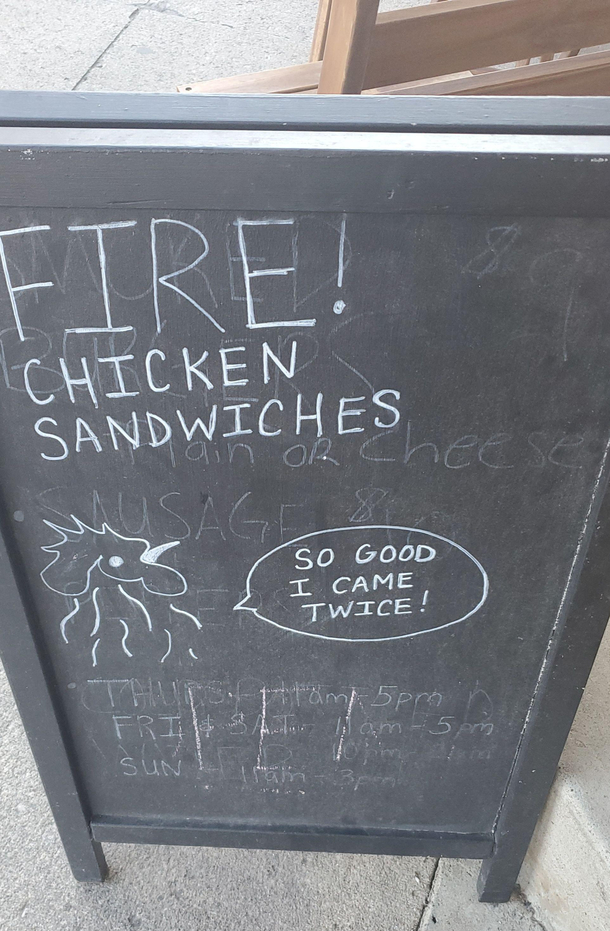 FIRE!
CHICKEN
SANDWICHES
Plain OR cheese
SAUSAGE
SO GOOD
I CAME
TWICE!
THURS 11am-5pm
FRI & SAT 11am-5pm
SUN 11am-3pm